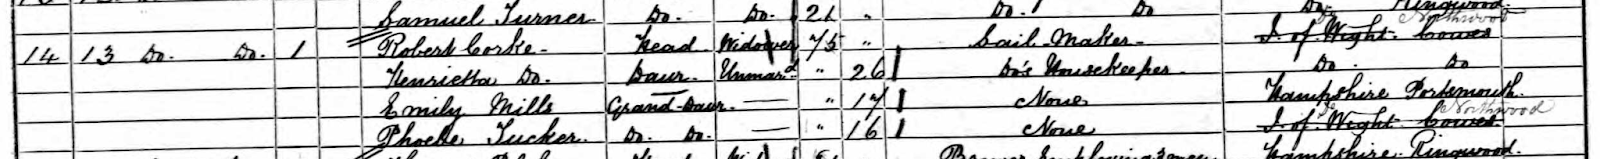 Samuel Turner Do. Do. 21 " Do. Do Do. Ringwood.
14 13 Do. Do. 1 Robert Corke Head Widower 75 " Sail Maker I. of Wight Cowes Northwood
Henrietta Do. Daur. Unmard. " 26 Do's Housekeeper Do. Do
Emily Mills Grand-Daur. — " 17 None Hampshire Portsmouth.
Phoebe Tucker Do. Do. — " 16 None I. of Wight Cowes Northwood
Hampshire. Ringwood.